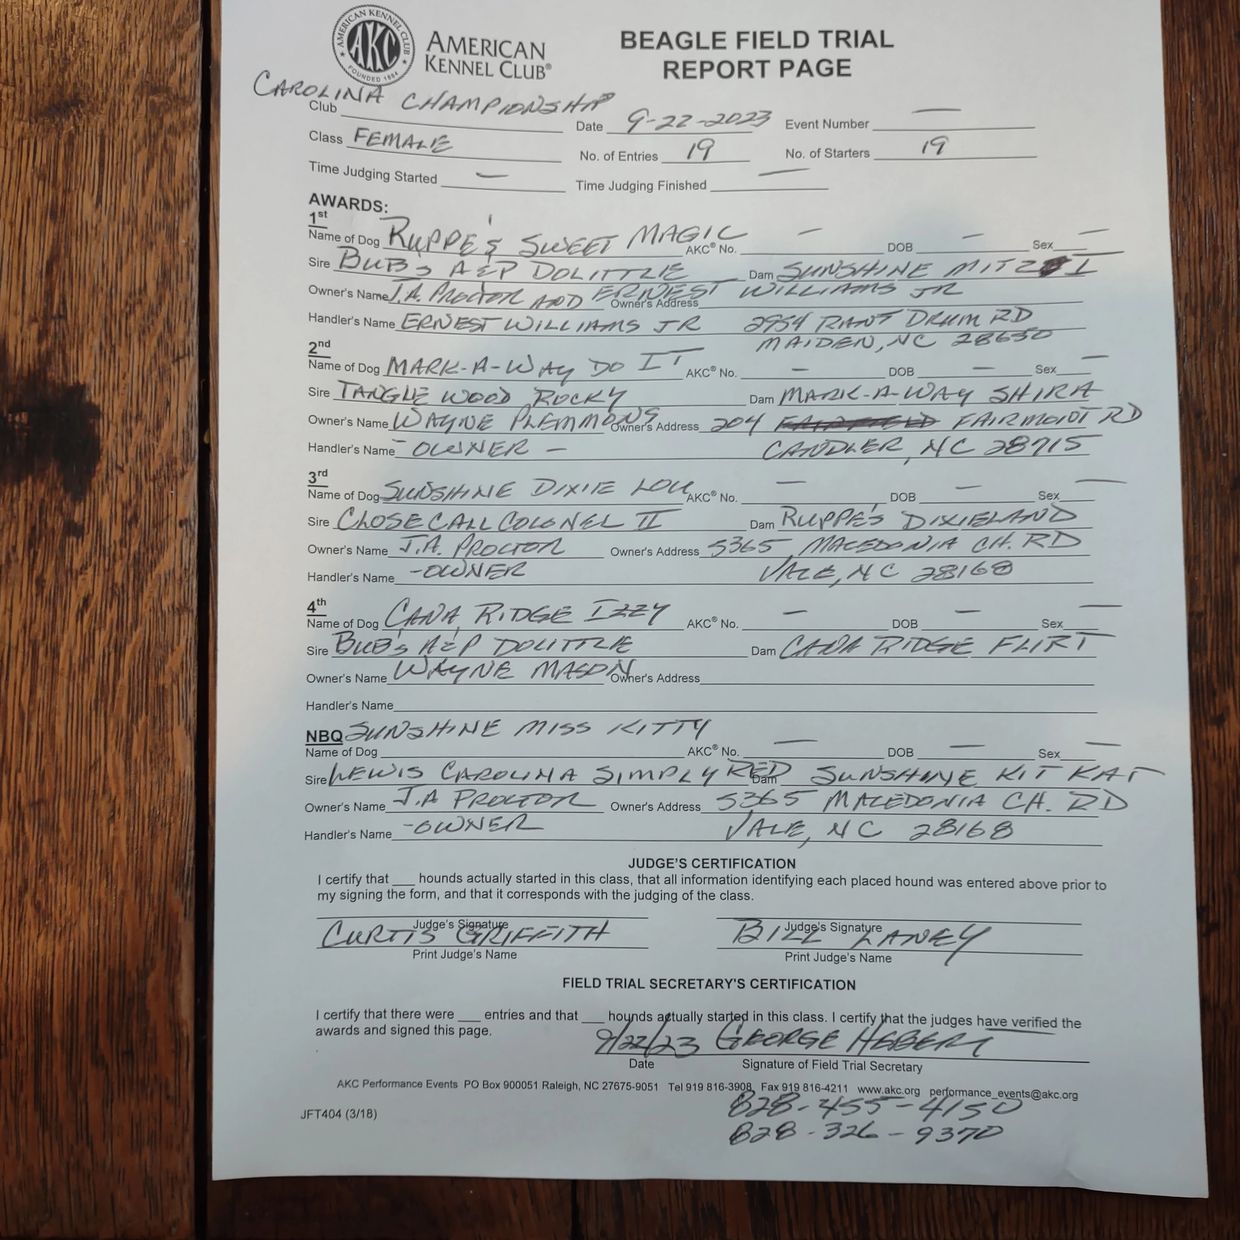 AMERICAN KENNEL CLUB
AKC
FOUNDED 1884
AMERICAN
KENNEL CLUB®
BEAGLE FIELD TRIAL
REPORT PAGE
Club CAROLINA CHAMPIONSHIP Date 9-22-2023 Event Number —
Class FEMALE No. of Entries 19 No. of Starters 19
Time Judging Started — Time Judging Finished —
AWARDS:
1st
Name of Dog RUPPE'S SWEET MAGIC AKC® No. — DOB — Sex —
Sire BUB'S A&P DOLITTLE Dam SUNSHINE MITZI
Owner's Name J.A. PROCTOR AND ERNEST WILLIAMS JR Owner's Address
Handler's Name ERNEST WILLIAMS JR 2954 DRUM RD
MAIDEN, NC 28650
2nd
Name of Dog MARK-A-WAY DO IT AKC® No. — DOB — Sex —
Sire TANGLEWOOD ROCKY Dam MARK-A-WAY SHIRA
Owner's Name WAYNE PLEMMONS Owner's Address 204 FAIRMONT RD
Handler's Name - OWNER - CANDLER, NC 28715
3rd
Name of Dog SUNSHINE DIXIE LOU AKC® No. — DOB — Sex —
Sire CLOSE CALL COLONEL II Dam RUPPE'S DIXIELAND
Owner's Name J.A. PROCTOR Owner's Address 5365 MACEDONIA CH. RD
Handler's Name -OWNER VALE, NC 28168
4th
Name of Dog CANA RIDGE IZZY AKC® No. — DOB — Sex —
Sire BUB'S A&P DOLITTLE Dam CANA RIDGE FLIRT
Owner's Name WAYNE MASON Owner's Address
Handler's Name
NBQ SUNSHINE MISS KITTY
Name of Dog AKC® No. — DOB — Sex —
Sire LEWIS CAROLINA SIMPLY RED Dam SUNSHINE KIT KAT
Owner's Name J.A PROCTOR Owner's Address 5365 MACEDONIA CH. RD
Handler's Name -OWNER VALE, NC 28168
JUDGE'S CERTIFICATION
I certify that ___ hounds actually started in this class, that all information identifying each placed hound was entered above prior to
my signing the form, and that it corresponds with the judging of the class.
Judge's Signature Judge's Signature
CURTIS GRIFFITH BILL LANEY
Print Judge's Name Print Judge's Name
FIELD TRIAL SECRETARY'S CERTIFICATION
I certify that there were ___ entries and that ___ hounds actually started in this class. I certify that the judges have verified the
awards and signed this page.
9/22/23 GEORGE HEBERT
Date Signature of Field Trial Secretary
AKC Performance Events PO Box 900051 Raleigh, NC 27675-9051 Tel 919 816-3908 Fax 919 816-4211 www.akc.org performance_events@akc.org
JFT404 (3/18)
828-455-4150
828-326-9370